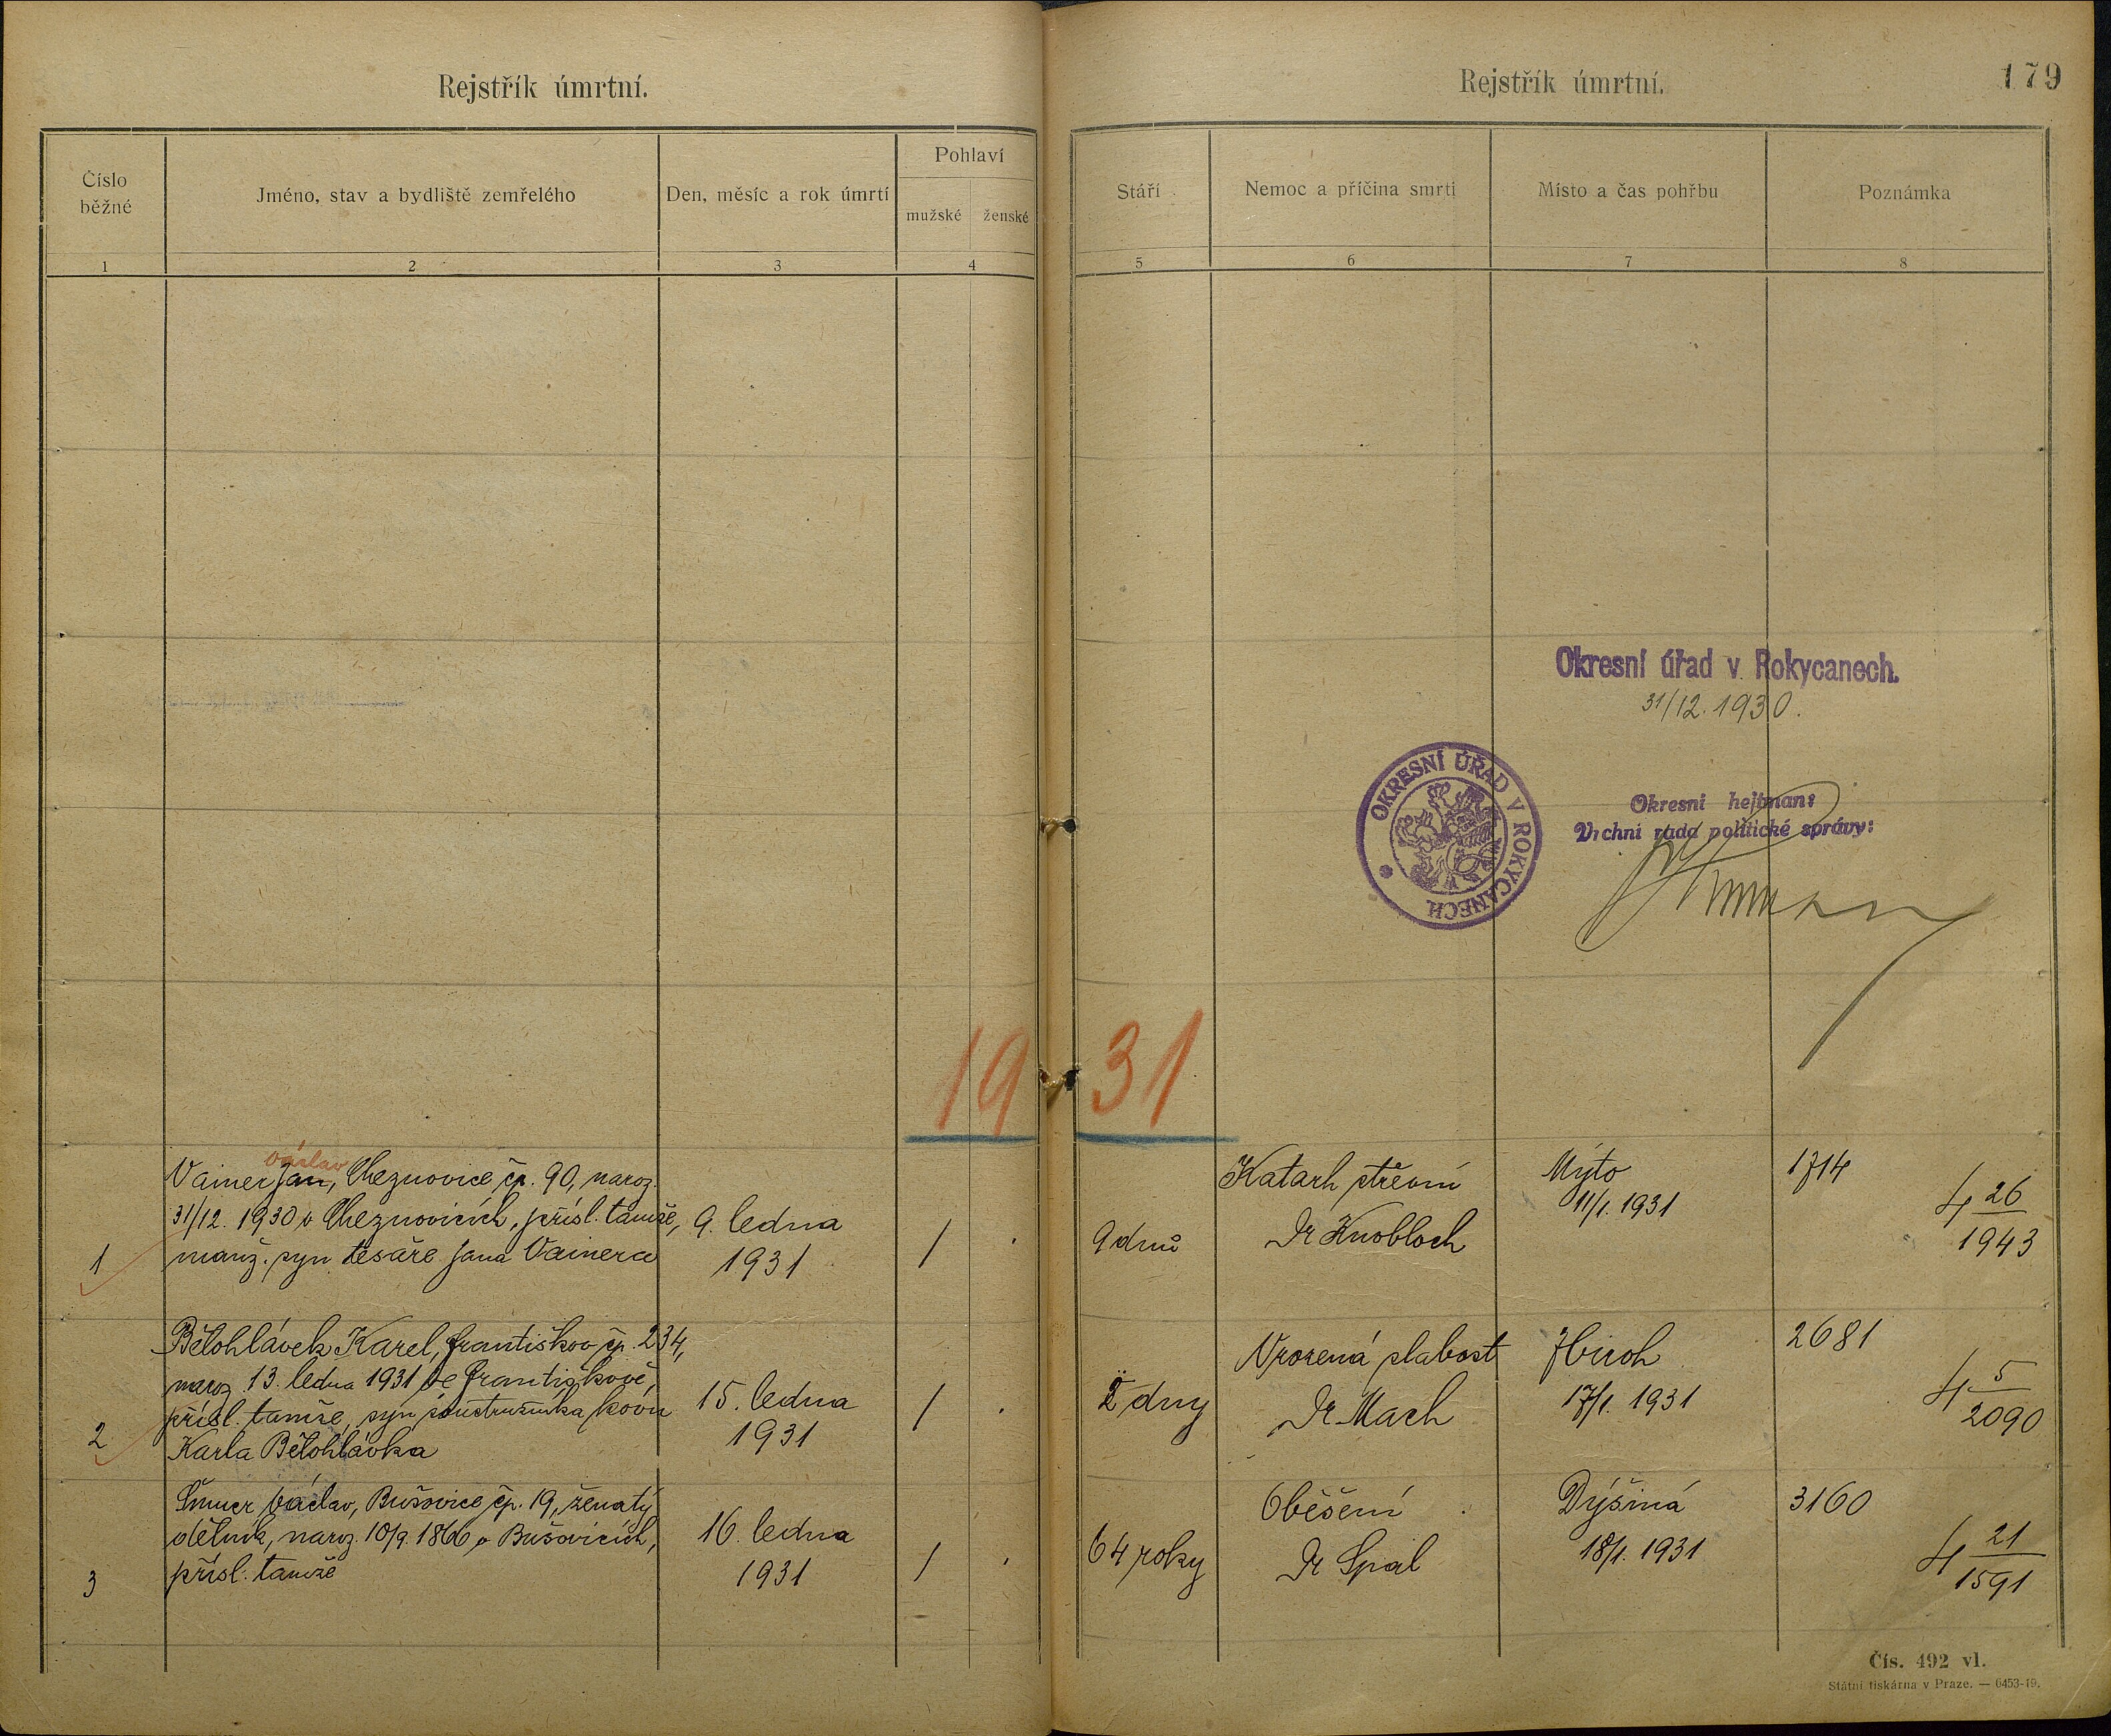 Rejstřík úmrtní.
Číslo
běžné
Jméno, stav a bydliště zemřelého
Den, měsíc a rok úmrtí
Pohlaví
mužské
ženské
1
2
3
4
Rejstřík úmrtní.
179
Stáří
Nemoc a příčina smrti
Místo a čas pohřbu
Poznámka
5
6
7
8
Okresní úřad v Rokycanech.
31/12. 1930.
OKRESNÍ ÚŘAD V ROKYCANECH
Okresní hejtman:
Vrchní rada politické správy:
19 31
václav
Vainer Jan, Cheznovice čp. 90, naroz.
31/12. 1930 v Cheznovicích, přísl. tamže,
manž. syn tesaře Jana Vainera
1
9. ledna
1931
/
9 dnů
Katarh střevní
Dr Knobloch
Mýto
11/1. 1931
1714
4 26
1943
Bělohlávek Karel, Františkov čp. 234,
naroz. 13. ledna 1931 ve Františkově,
přísl. tamže, syn soustružníka kovů
Karla Bělohlávka
2
15. ledna
1931
/
2 dny
Vrozená slabost
Dr. Mach
Zbiroh
17/1. 1931
2681
4 5
2090
Václav, Bušovice čp. 19, ženatý
dělník, naroz. 10/9. 1866 v Bušovicích,
přísl. tamže
3
16. ledna
1931
/
64 roky
Oběšení
Dr Spal
Dýšiná
18/1. 1931
3160
4 21
1591
Čís. 492 vl.
Státní tiskárna v Praze. — 6453-19.